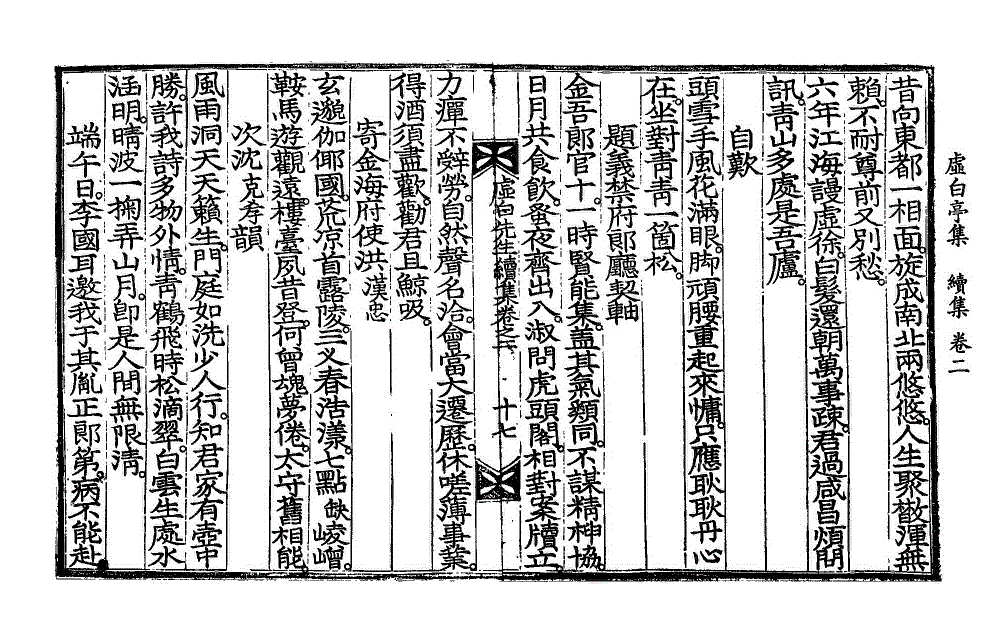 虛白亭集 續集 卷二
昔向東都一相面旋成南北兩悠悠人生聚散渾無
賴不耐尊前又別愁
六年江海謾虛徐白髮還朝萬事疎君過咸昌煩問
訊靑山多處是吾廬
自歎
頭雪手風花滿眼脚頑腰重起來慵只應耿耿丹心
在坐對靑靑一箇松
題義禁府郞廳契軸
金吾郞官十一時賢能集蓋其氣類同不謀精神協
日月共食飮蚤夜齊出入淑問虎頭閣相對案牘立
虛白先生續集卷之二 十七
力癉不辭勞自然聲名洽會當大遷歷休嗟簿事業
得酒須盡歡勸君且鯨吸
寄金海府使洪漢忠
玄邈伽倻國荒凉首露陵三叉春浩漾七點缺崚嶒
鞍馬遊觀遠樓臺夙昔登何曾魂夢倦太守舊相能
次沈克孝韻
風雨洞天天籟生門庭如洗少人行知君家有壺中
勝許我詩多物外情靑鶴飛時松滴翠白雲生處水
涵明晴波一掬弄山月卽是人間無限淸
端午日李國耳邀我于其胤正郞第病不能赴